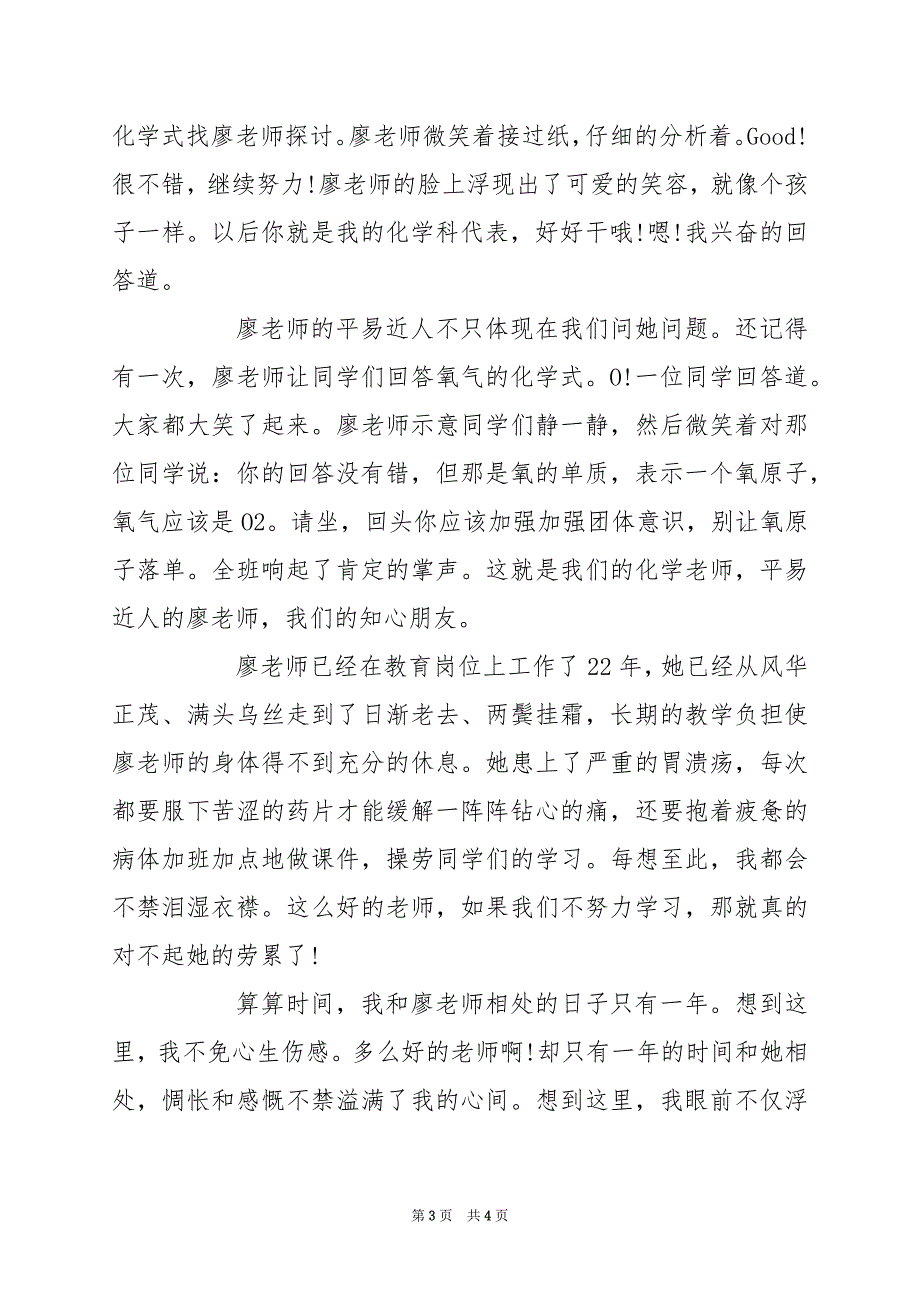 化学式找廖老师探讨。廖老师微笑着接过纸，仔细的分析着。Good!
很不错，继续努力!廖老师的脸上浮现出了可爱的笑容，就像个孩
子一样。以后你就是我的化学科代表，好好干哦!嗯!我兴奋的回
答道。
廖老师的平易近人不只体现在我们问她问题。还记得
有一次，廖老师让同学们回答氧气的化学式。O!一位同学回答道。
大家都大笑了起来。廖老师示意同学们静一静，然后微笑着对那
位同学说：你的回答没有错，但那是氧的单质，表示一个氧原子，
氧气应该是 O2。请坐，回头你应该加强加强团体意识，别让氧原
子落单。全班响起了肯定的掌声。这就是我们的化学老师，平易
近人的廖老师，我们的知心朋友。
廖老师已经在教育岗位上工作了 22 年，她已经从风华
正茂、满头乌丝走到了日渐老去、两鬓挂霜，长期的教学负担使
廖老师的身体得不到充分的休息。她患上了严重的胃溃疡，每次
都要服下苦涩的药片才能缓解一阵阵钻心的痛，还要抱着疲惫的
病体加班加点地做课件，操劳同学们的学习。每想至此，我都会
不禁泪湿衣襟。这么好的老师，如果我们不努力学习，那就真的
对不起她的劳累了!
算算时间，我和廖老师相处的日子只有一年。想到这
里，我不免心生伤感。多么好的老师啊!却只有一年的时间和她相
处，惆怅和感慨不禁溢满了我的心间。想到这里，我眼前不仅浮
第 3 页 共 4 页